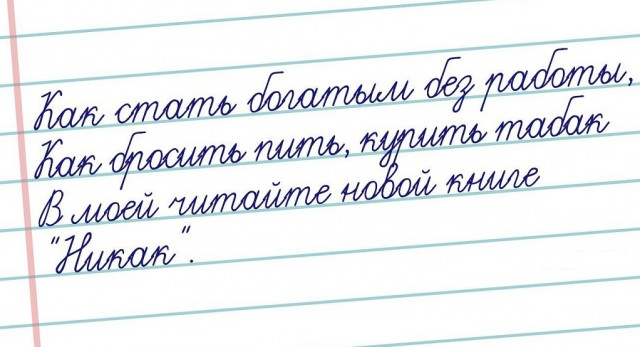 Как стать богатым без работы,
Как бросить пить, курить табак
В моей читайте новой книге
"Никак".